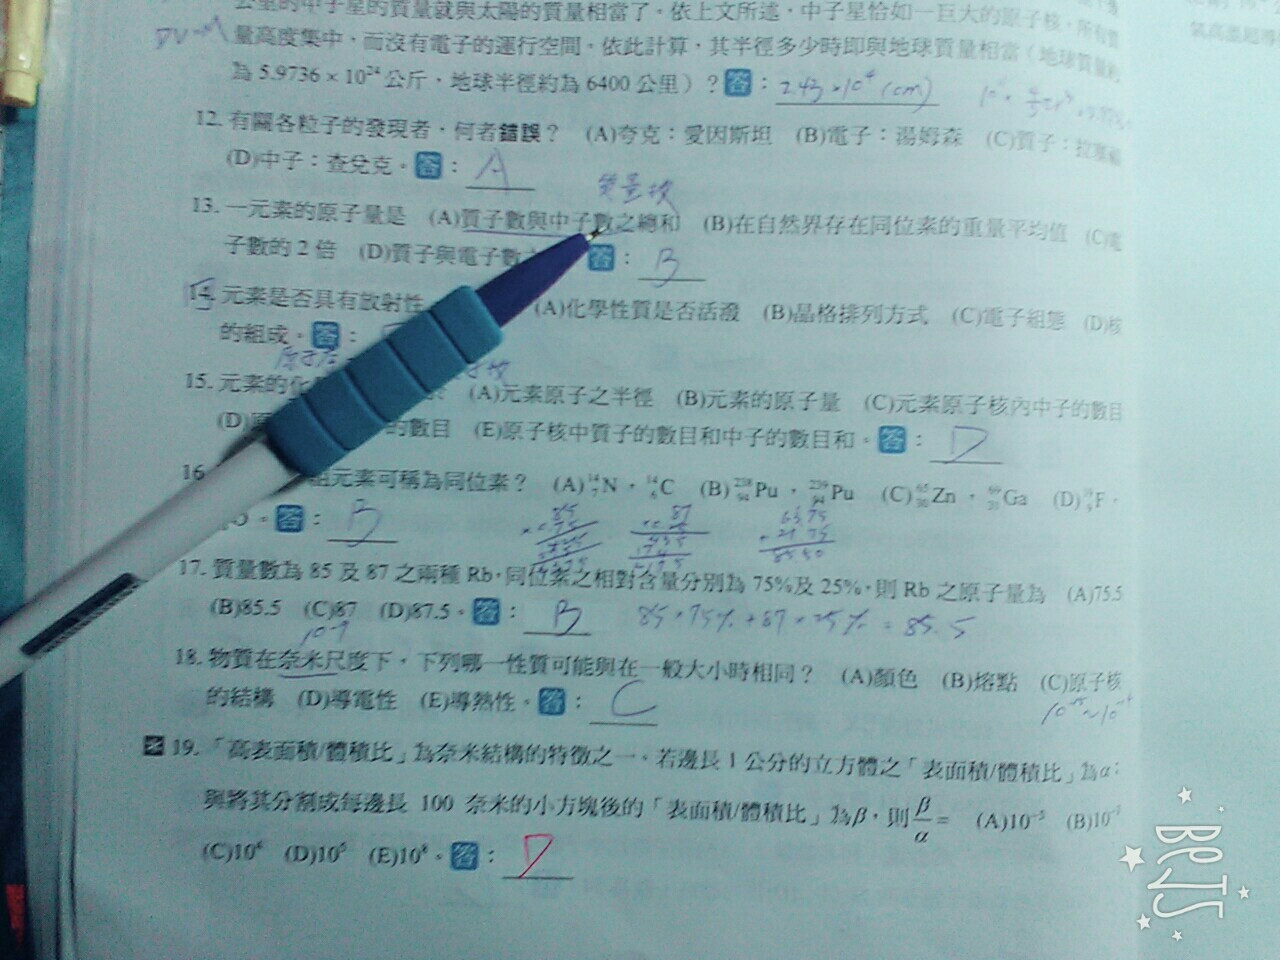 公里的中子星的質量就與太陽的質量相當了。依上文所述,中子星恰如一巨大的原子核,所有質
量高度集中,而沒有電子的運行空間。依此計算,其半徑多少時即與地球質量相當(地球質量約
為 5.9736 × 10²⁴ 公斤,地球半徑約為 6400 公里)?答:2.43 × 10⁴ (cm)
12. 有關各粒子的發現者,何者錯誤? (A)夸克:愛因斯坦 (B)電子:湯姆森 (C)質子:拉塞福
(D)中子:查兌克。答:A
質量數
13. 一元素的原子量是 (A)質子數與中子數之總和 (B)在自然界存在同位素的重量平均值 (C)電
子數的 2 倍 (D)質子與電子數 答:B
14. 元素是否具有放射性 (A)化學性質是否活潑 (B)晶格排列方式 (C)電子組態 (D)核
的組成。答:
15. 元素的化 (A)元素原子之半徑 (B)元素的原子量 (C)元素原子核內中子的數目
(D)原 的數目 (E)原子核中質子的數目和中子的數目和。答:D
16 組元素可稱為同位素? (A)¹⁴₇N,¹⁴₆C (B)²³⁸₉₄Pu,²³⁹₉₄Pu (C)⁶⁵₃₀Zn, ₃₁Ga (D)¹⁹₉F,
O。答:B
17. 質量數為 85 及 87 之兩種 Rb,同位素之相對含量分別為 75%及 25%,則 Rb 之原子量為 (A)75.5
(B)85.5 (C)87 (D)87.5。答:B 85 × 75% + 87 × 25% = 85.5
18. 物質在奈米尺度下,下列哪一性質可能與在一般大小時相同? (A)顏色 (B)熔點 (C)原子核
的結構 (D)導電性 (E)導熱性。答:C
19.「高表面積/體積比」為奈米結構的特徵之一。若邊長 1 公分的立方體之「表面積/體積比」為α;
與將其分割成每邊長 100 奈米的小方塊後的「表面積/體積比」為β,則 β/α = (A)10⁻⁵ (B)10
(C)10⁶ (D)10⁵ (E)10⁸。答:D